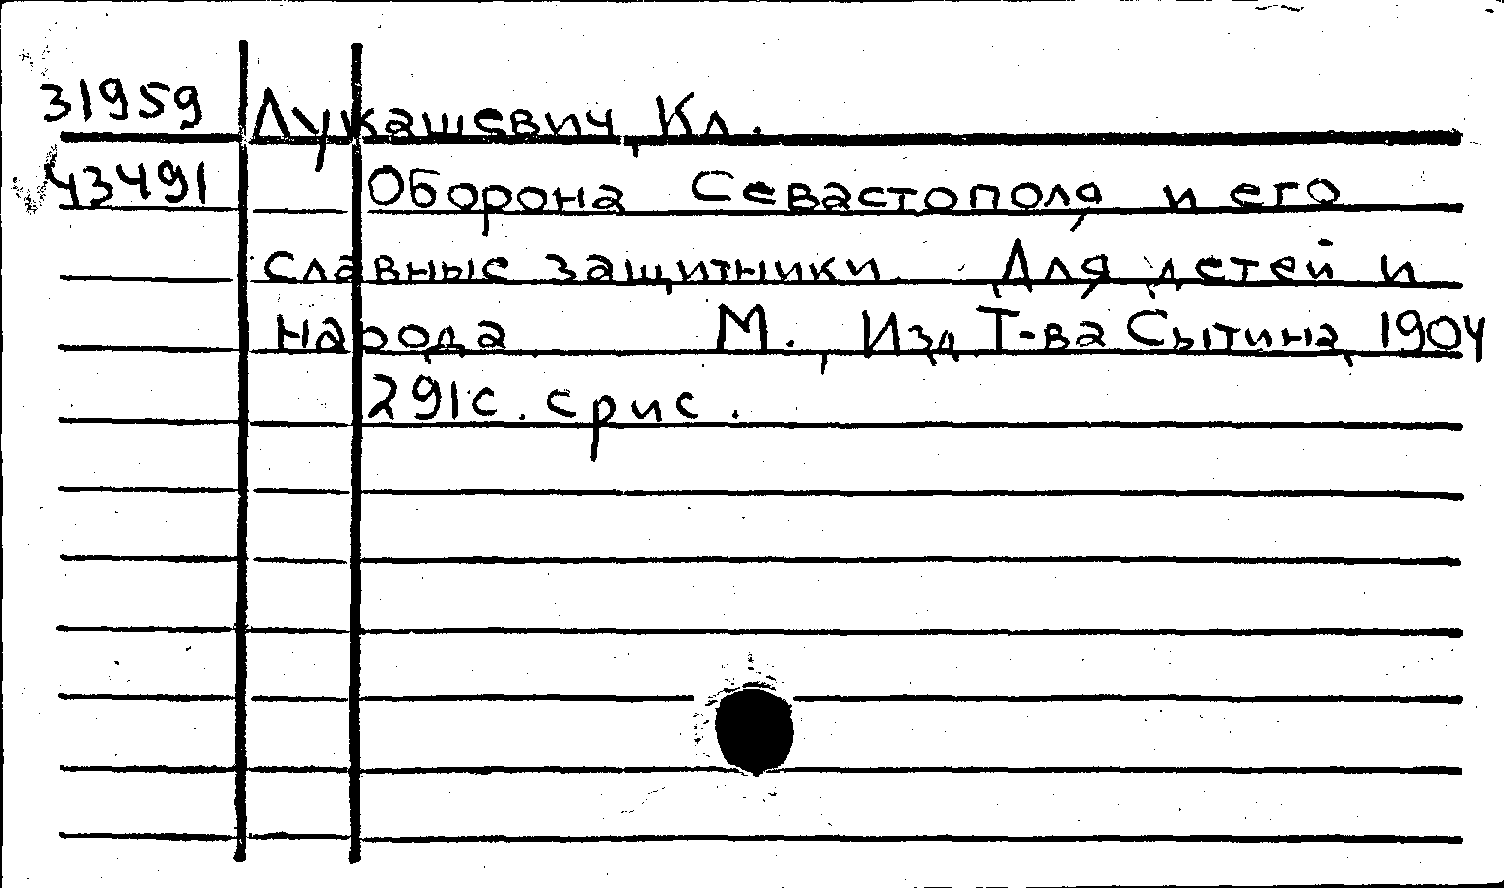 31959 Лукашевич, Кл.
43491 Оборона Севастополя и его
славные защитники. Для детей и
народа. М., Изд. Т-ва Сытина, 1904
291с. с рис.